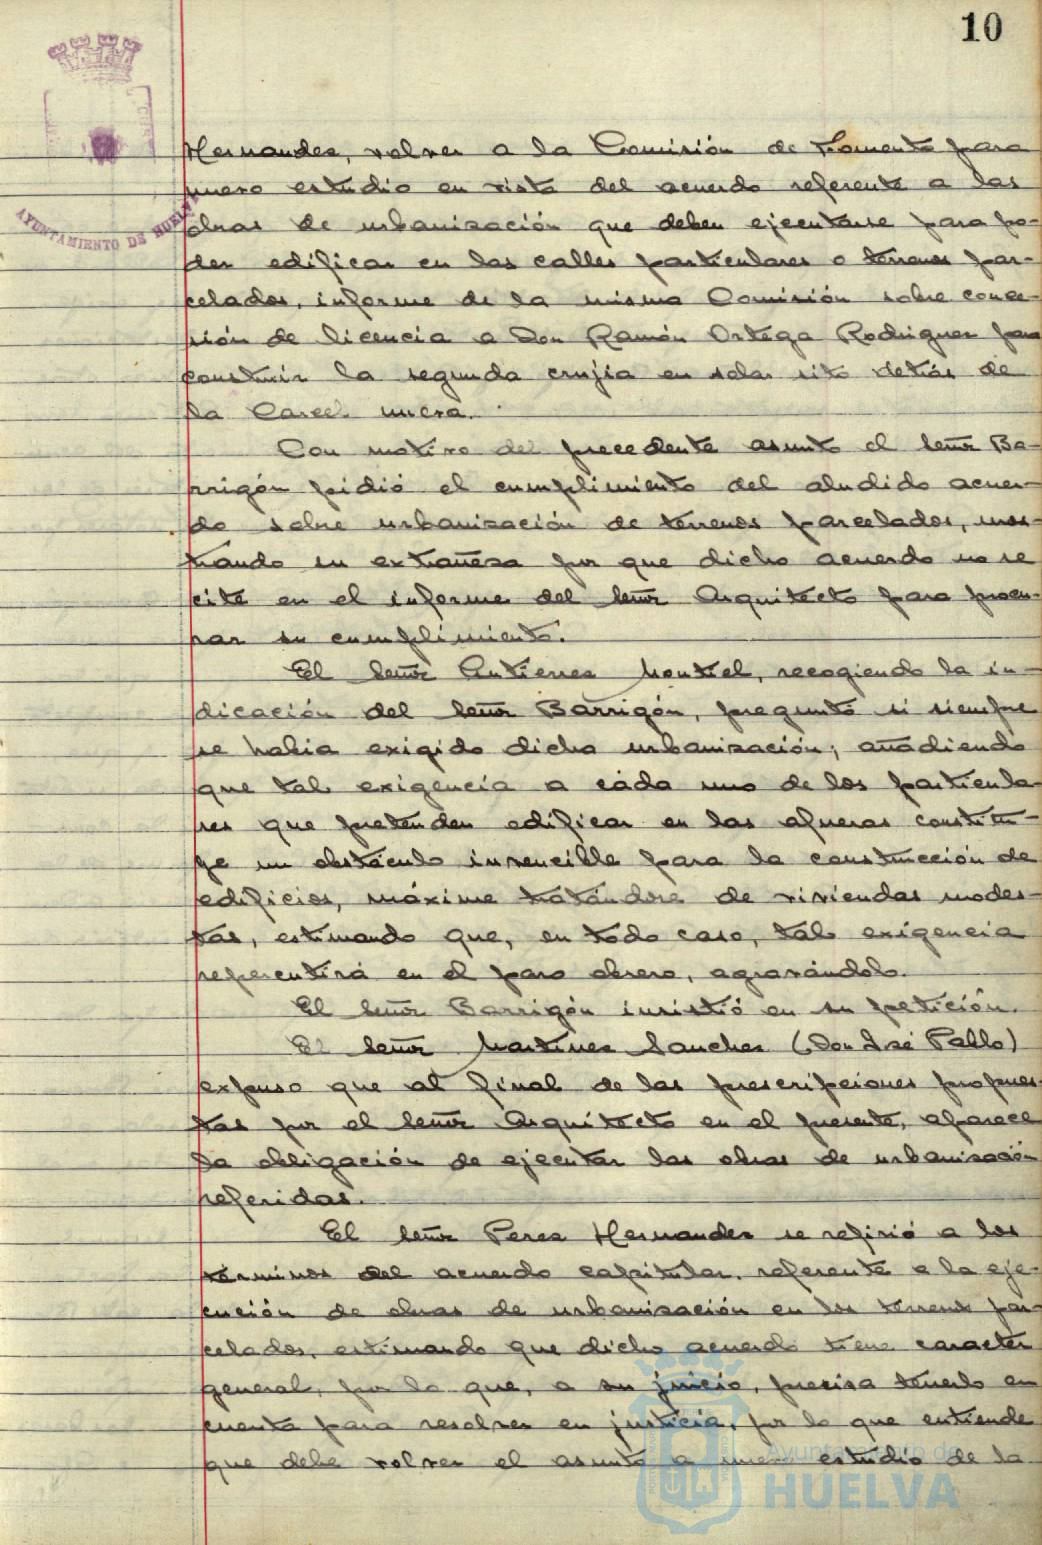 10
AYUNTAMIENTO DE HUELVA
Hernandez, volver a la Comisión de Fomento para
nuevo estudio en vista del acuerdo referente a las
obras de urbanización que deben ejecutarse para po-
der edificar en las calles particulares o terrenos par-
celados, informe de la misma Comisión sobre conce-
sión de licencia a Don Ramón Ortega Rodriguez para
construir la segunda crujia en solar sito detrás de
la Carcel nueva.
Con motivo del precedente asunto el señor Ba-
rrigón pidió el cumplimiento del aludido acuer-
do sobre urbanización de terrenos parcelados, mos-
trando su extrañeza por que dicho acuerdo no se
cite en el informe del señor Arquitecto para procu-
rar su cumplimiento.
El señor Gutierrez Montiel, recogiendo la in-
dicación del señor Barrigón, preguntó si siempre
se habia exigido dicha urbanización; añadiendo
que tal exigencia a cada uno de los particula-
res que pretenden edificar en las afueras constitu-
ye un obstáculo invencible para la construcción de
edificios, máxime tratándose de viviendas modes-
tas, estimando que, en todo caso, tal exigencia
repercutirá en el paro obrero, agravándolo.
El señor Barrigón insistió en su petición.
El señor Martinez Sanchez (Don José Pablo)
expuso que al final de las prescripciones propues-
tas por el señor Arquitecto en el presente, aparece
la obligación de ejecutar las obras de urbanización
referidas.
El señor Perez Hernandez se refirió a los
términos del acuerdo capitular, referente a la eje-
cución de obras de urbanización en los terrenos par-
celados, estimando que dicho acuerdo tiene caracter
general, por lo que, a su juicio, precisa tenerlo en
cuenta para resolver en justicia, por lo que entiende
que debe volver el asunto a nuevo estudio de la
Ayuntamiento de
HUELVA